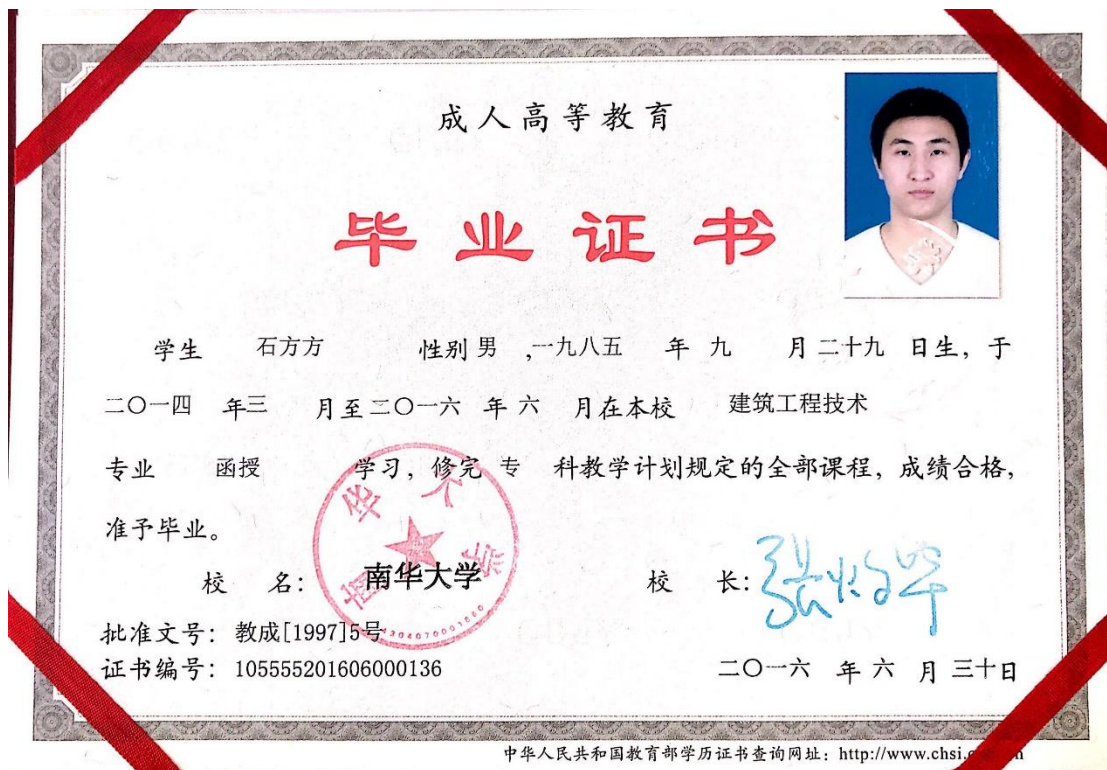 成人高等教育
毕业证书
学生 石方方 性别 男 ,一九八五 年 九 月 二十九 日生，于
二〇一四 年三 月至二〇一六 年 六 月在本校 建筑工程技术
专业 函授 学习，修完 专 科教学计划规定的全部课程，成绩合格，
准予毕业。
校 名： 南华大学 校 长：
南华大学
批准文号： 教成[1997]5号
证书编号： 105555201606000136 二〇一六 年 六 月 三十日
中华人民共和国教育部学历证书查询网址：http://www.chsi.